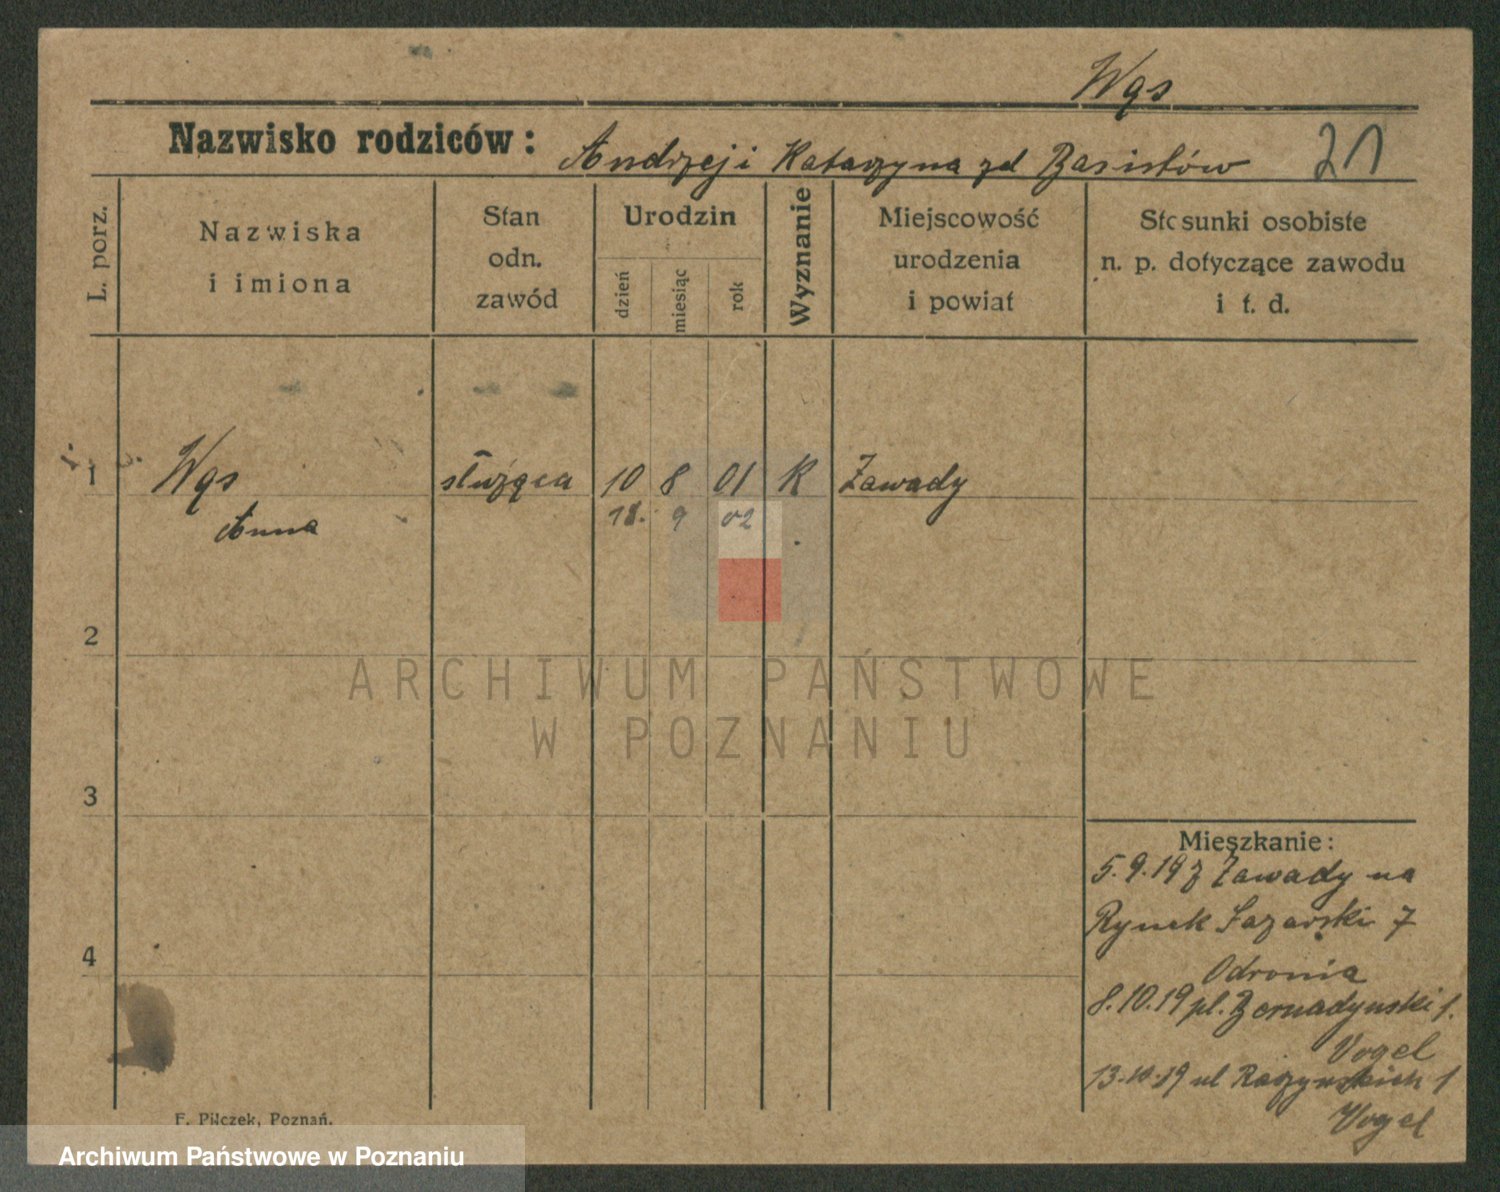 Wąs
Nazwisko rodziców: Andrzej i Katarzyna zd Basistów 21
L. porz.
Nazwiska
i imiona
Stan
odn.
zawód
Urodzin
dzień
miesiąc
rok
Wyznanie
Miejscowość
urodzenia
i powiat
Stosunki osobiste
n. p. dotyczące zawodu
i t. d.
1 Wąs służąca 10 8 01 K Zawady
Anna 18. 9 02
2
3
4
Mieszkanie:
5.9.19 z Zawady na
Rynek Łazarski 7
Odronia
8.10.19 pl. Bernadynski 1.
Vogel
13.10.19 ul Raczynskich 1
Vogel
F. Pilczek, Poznań.
ARCHIWUM PAŃSTWOWE
W POZNANIU
Archiwum Państwowe w Poznaniu